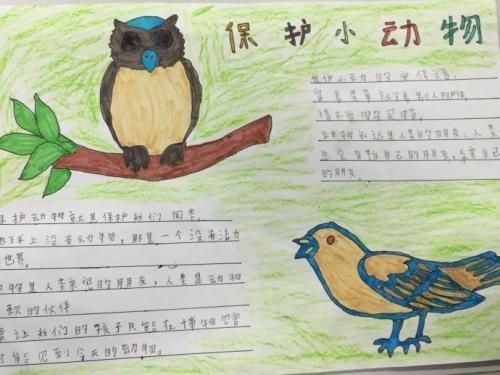 保护小动物
保护小动物的宣传语:
就是别人的
请不要
动物永远是人类的朋友,人类
自己的朋友,自己
的朋友。
保护动物就是保护我们同类。
地球上没有动物,那是一个没有活力
世界。
物是人类亲密的朋友,人类是动物
的伙伴
要让我们的孩子只能在博物馆
才能见到今天的动物。